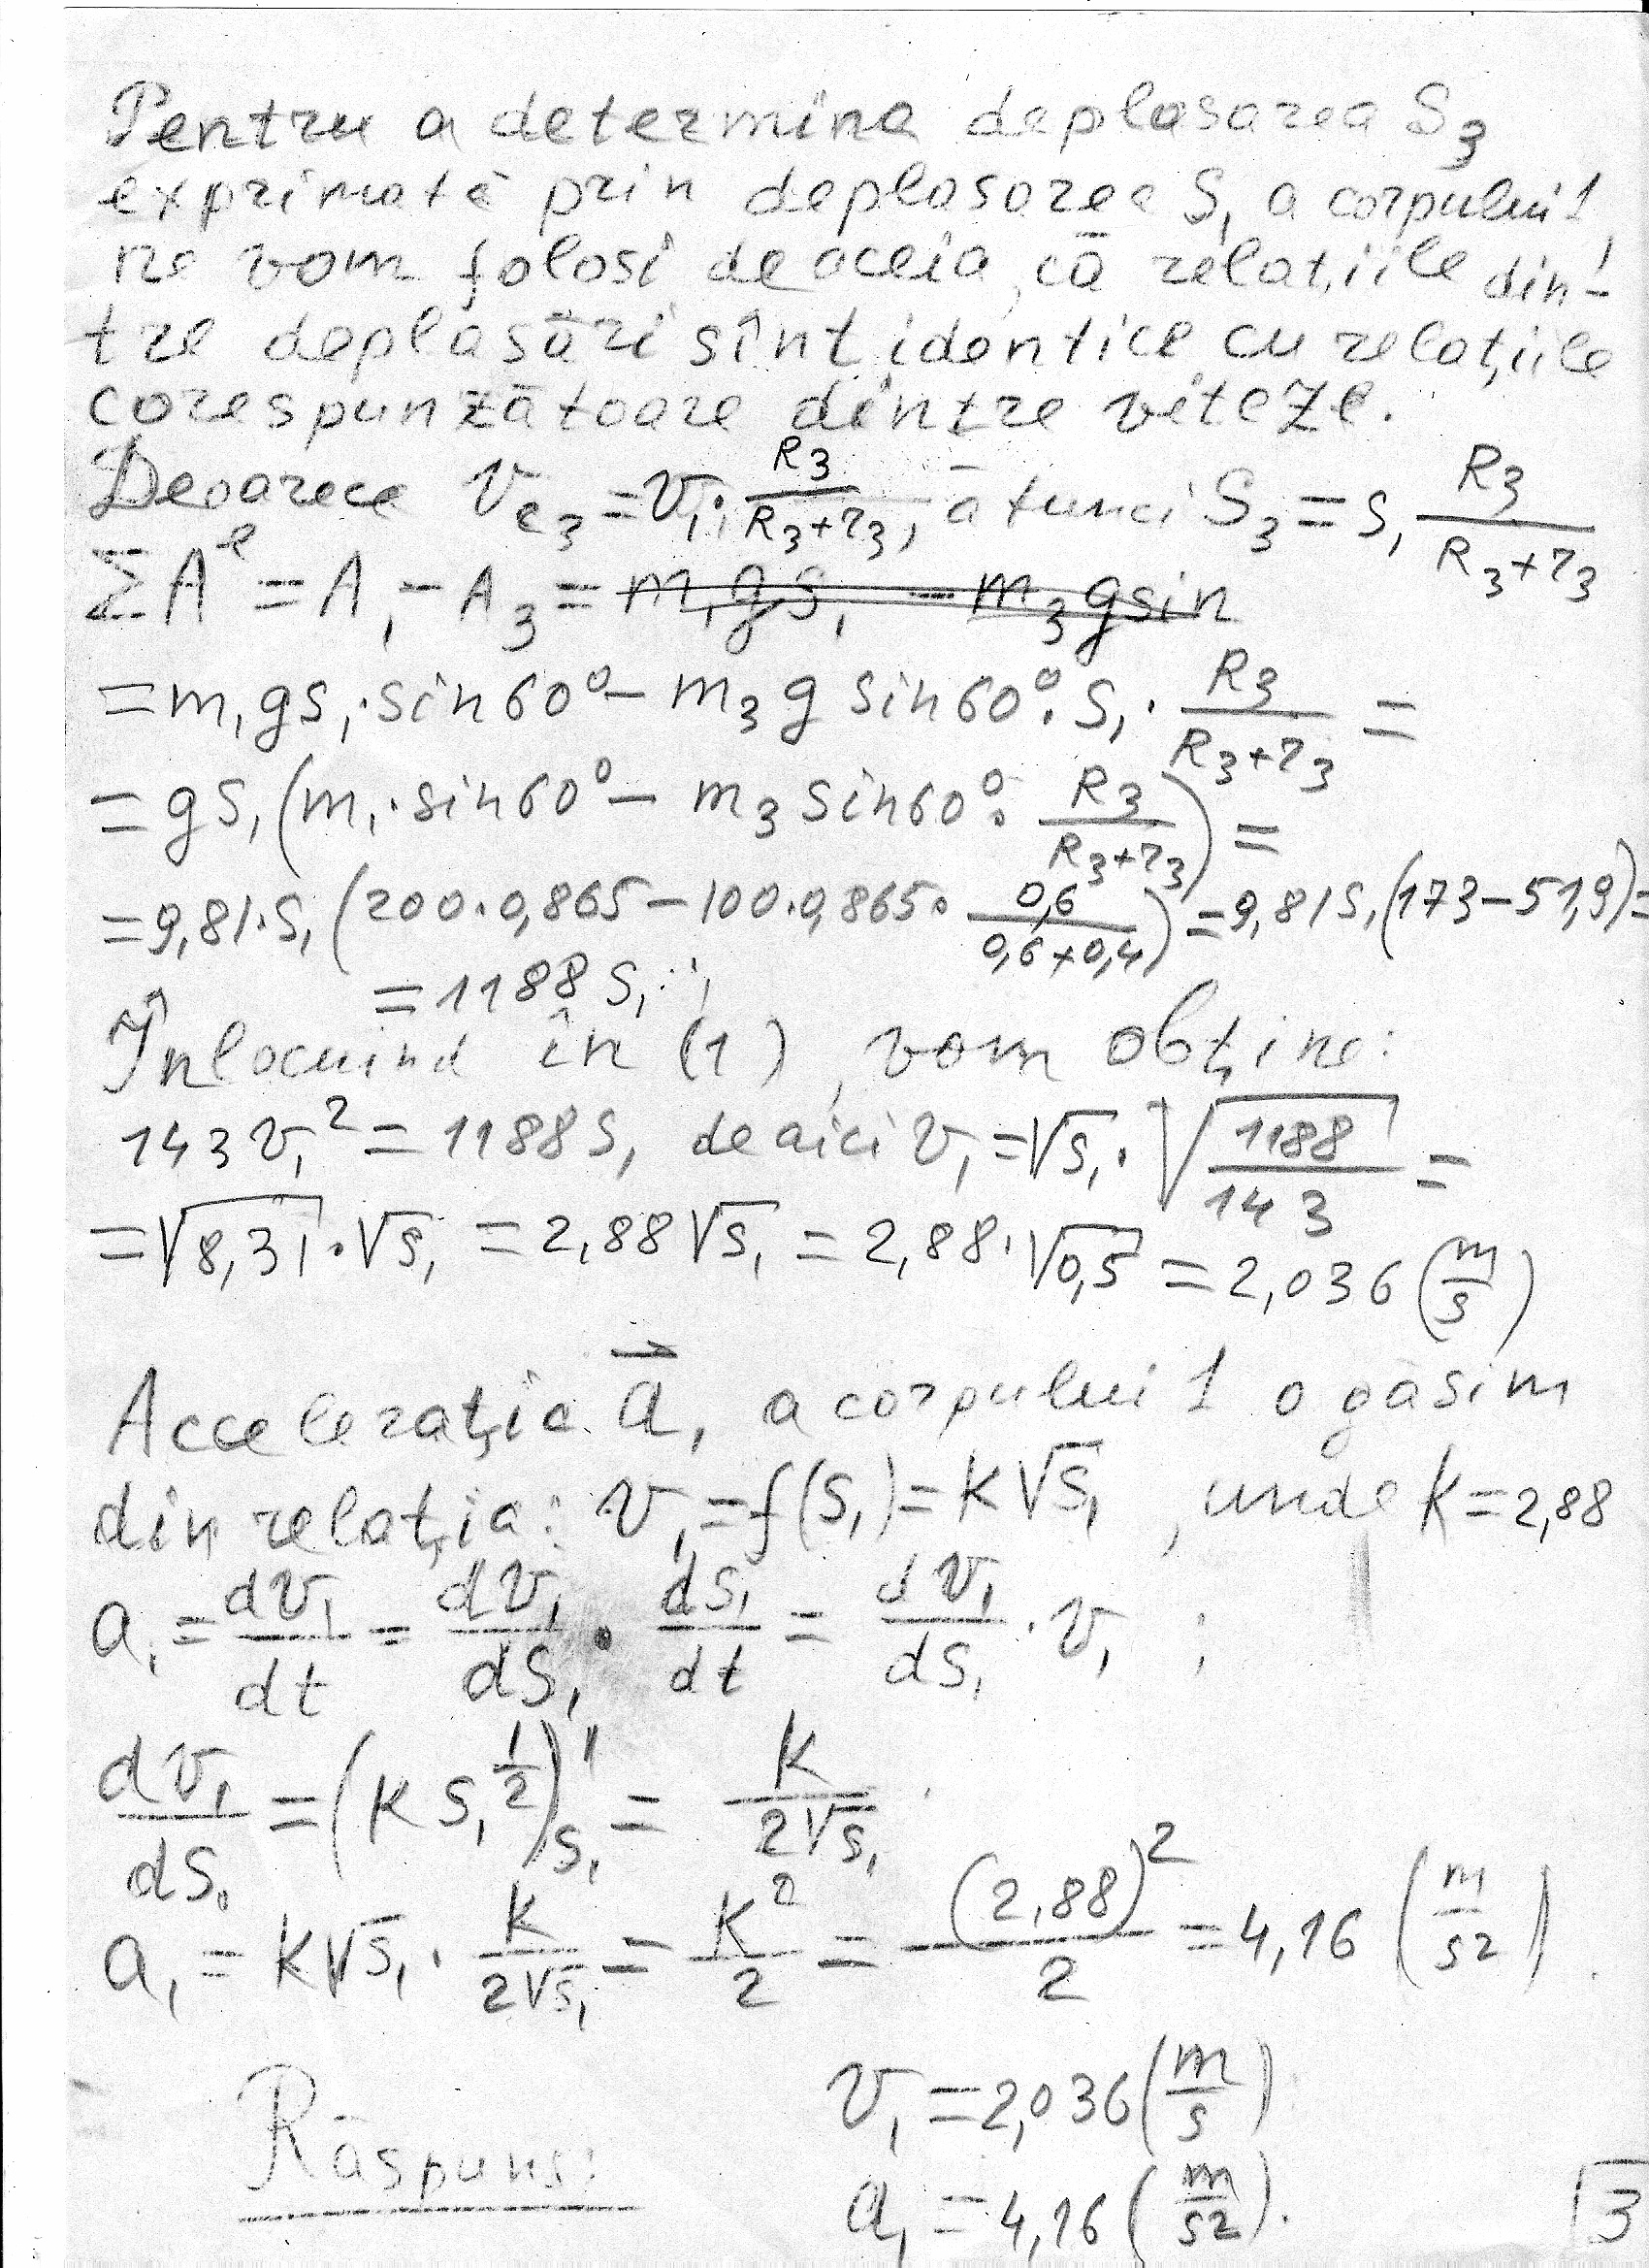 Pentru a determina deplasarea S₃
exprimată prin deplasarea S₁ a corpului 1,
ne vom folosi de aceia, că relațiile din-
tre deplasări sînt identice cu relațiile
corespunzătoare dintre viteze.
Deoarece V_c₃ = V₁ · R₃/(R₃+r₃), atunci S₃ = S₁ R₃/(R₃+r₃)
ΣA^e = A₁ − A₃ = m₁gs₁ − m₃gsin
= m₁gs₁·sin60° − m₃g sin60°·S₁· R₃/(R₃+r₃) =
= gS₁(m₁·sin60° − m₃sin60°· R₃/(R₃+r₃)) =
= 9,81·S₁(200·0,865 − 100·0,865· 0,6/(0,6+0,4)) = 9,81S₁(173−51,9) =
= 1188 S₁ ;
Înlocuind în (1), vom obține:
143V₁² = 1188S₁ de aici V₁ = √S₁ · √(1188/143) =
= √8,31 · √S₁ = 2,88√S₁ = 2,88·√0,5 = 2,036 (m/s)
Accelerația a⃗₁ a corpului 1 o găsim
din relația: V₁ = f(S₁) = K√S₁ , unde K = 2,88
a₁ = dV₁/dt = dV₁/dS₁ · dS₁/dt = dV₁/dS₁ · V₁ ;
dV₁/dS₁ = (K S₁^(1/2))'_S₁ = K/(2√S₁)
a₁ = K√S₁ · K/(2√S₁) = K²/2 = (2,88)²/2 = 4,16 (m/s²)
Răspuns: V₁ = 2,036 (m/s)
a₁ = 4,16 (m/s²).
3